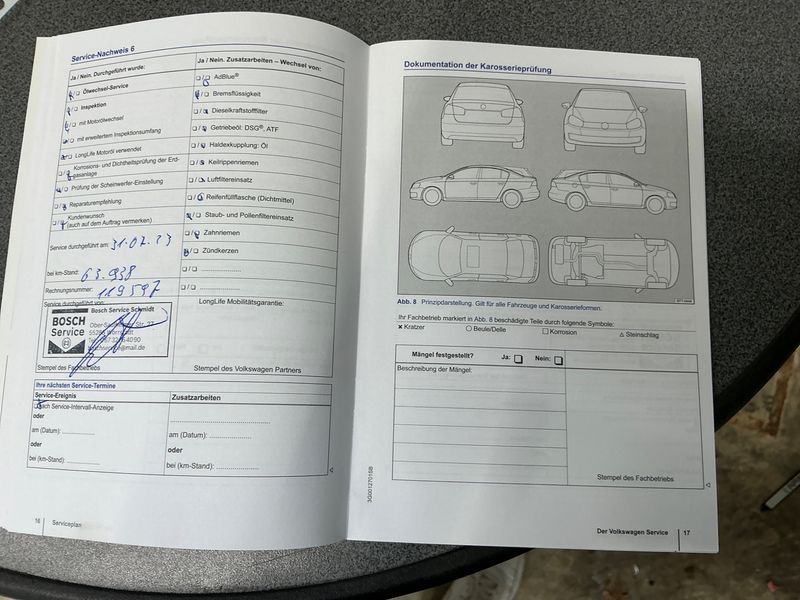 Service-Nachweis 6
Ja / Nein. Durchgeführt wurde:
Ölwechsel-Service
Inspektion
mit Motorölwechsel
mit erweitertem Inspektionsumfang
LongLife Motoröl verwendet
Korrosions- und Dichtheitsprüfung der Erd-
gasanlage
Prüfung der Scheinwerfer-Einstellung
Reparaturempfehlung
Kundenwunsch
(auch auf dem Auftrag vermerken)
Service durchgeführt am: 31.07.23
bei km-Stand: 63.938
Rechnungsnummer: 119597
Service durchgeführt von:
BOSCH
Service
Bosch Service Schmidt
Stempel des Fachbetriebs
Ja / Nein. Zusatzarbeiten – Wechsel von:
AdBlue®
Bremsflüssigkeit
Dieselkraftstofffilter
Getriebeöl: DSG®, ATF
Haldexkupplung: Öl
Keilrippenriemen
Luftfiltereinsatz
Reifenfüllflasche (Dichtmittel)
Staub- und Pollenfiltereinsatz
Zahnriemen
Zündkerzen
LongLife Mobilitätsgarantie:
Stempel des Volkswagen Partners
Ihre nächsten Service-Termine
Service-Ereignis
nach Service-Intervall-Anzeige
oder
am (Datum):
oder
bei (km-Stand):
Zusatzarbeiten
am (Datum):
oder
bei (km-Stand):
16 Serviceplan
Dokumentation der Karosserieprüfung
Abb. 8 Prinzipdarstellung. Gilt für alle Fahrzeuge und Karosserieformen.
Ihr Fachbetrieb markiert in Abb. 8 beschädigte Teile durch folgende Symbole:
Kratzer
Beule/Delle
Korrosion
Steinschlag
Mängel festgestellt? Ja: Nein:
Beschreibung der Mängel:
Stempel des Fachbetriebs
3G0012701SB
Der Volkswagen Service 17